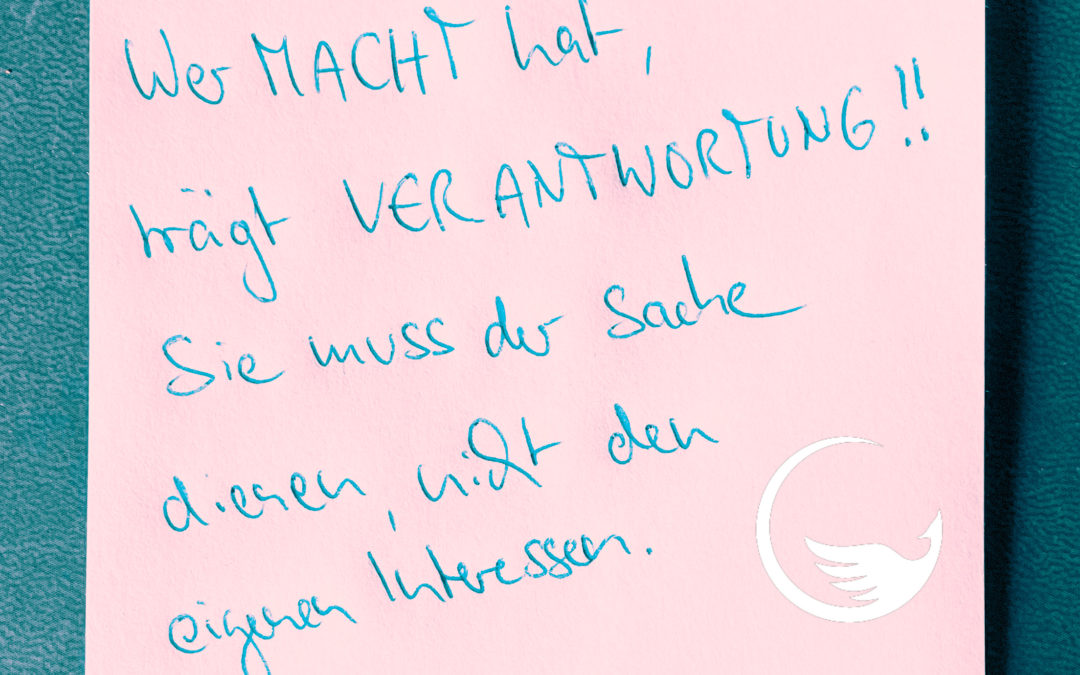 Wer MACHT hat,
trägt VERANTWORTUNG!!
Sie muss der Sache
dienen, nicht den
eigenen Interessen.